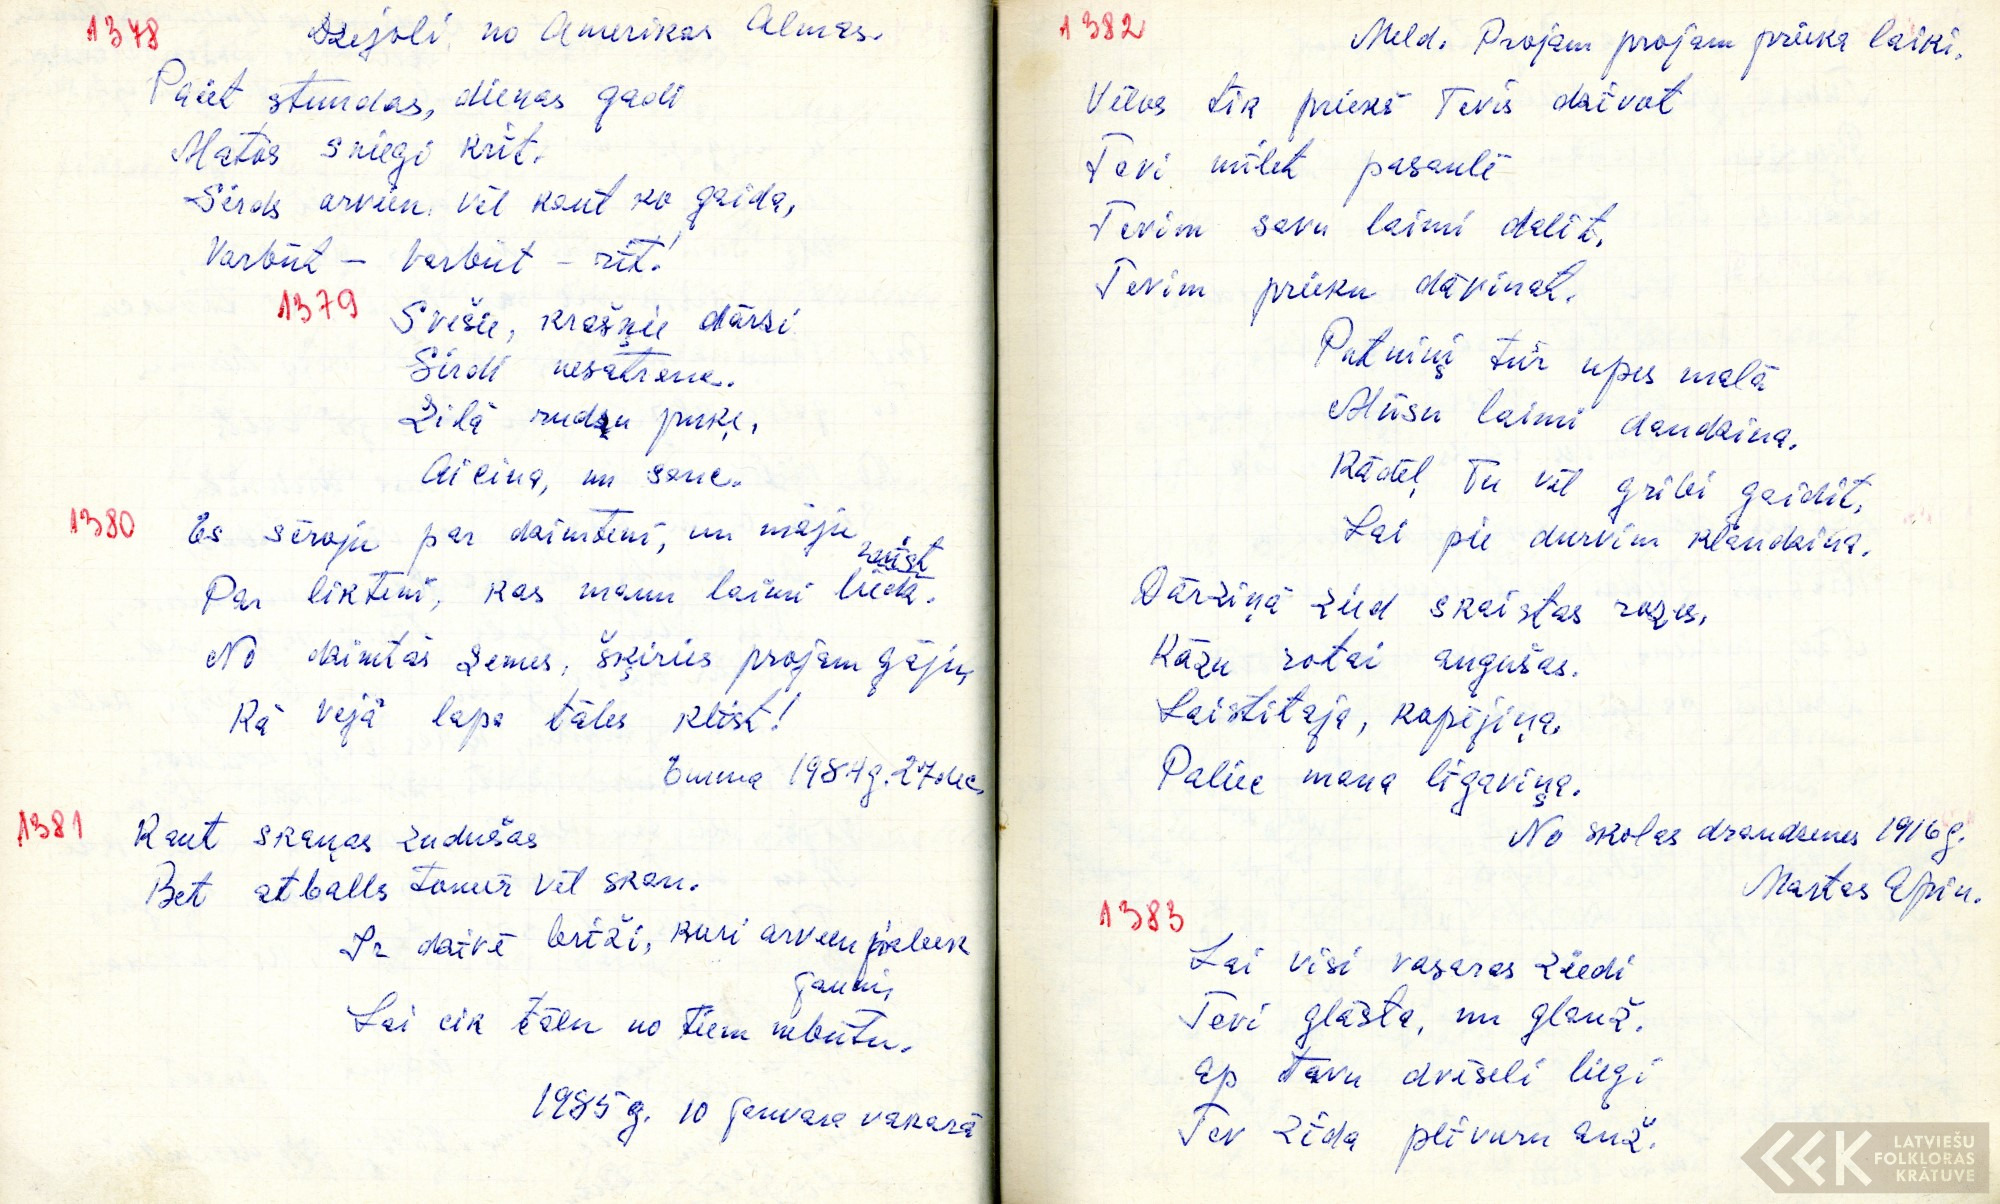 1378
Dzejoli no Amerikas Almas.
Paiet stundas, dienas gadi
Matos sniegi krīt.
Sirds arvien vēl kaut ko gaida,
Varbūt – Varbūt – rīt!
1379
Svešie, krašņie dārzi
Sirdi nesatrauc.
Zilā rudzu puķe,
Aicina, un sauc.
1380
Es sēroju par dzimteni, un māju
Par likteni, kas manu laimi liedā.
No dzimtās zemes, šķiries projām gāju,
Kā vejā lapa tāles klīst!
Emma 1984g. 27 dec.
1381
Kaut skaņas zudušas
Bet atballs tomēr vēl skan.
Ir dzivē brīži, kuri arvien paliek
gaiši,
Lai cik tālu no tiem nebūtu.
1985 g. 10 janvara vakarā
1382
Meld. Projam projam prieka laiki.
Vēlos tik priekš Tevis dzīvot
Tevi mīlet pasaulē
Tevim savu laimi dalīt,
Tevim prieku dāvinat.
Putniņi tur upes malā
Mūsu laimi daudzina.
Kādēļ Tu vēl gribi gaidīt,
Lai pie durvim klaudzina.
Dārziņā zied skaistas rozes,
Kāzu rotai augušas.
Laistītaja, kopējiņa,
Paliec mana līgaviņa.
No skolas draudzenes 1916g.
Martas Apin.
1383
Lai visi vasaras ziedi
Tevi glāsta, un glauž.
Ap tavu dvēseli liegi
Tev zīda plīvuru auž.
LATVIEŠU
FOLKLORAS
KRĀTUVE